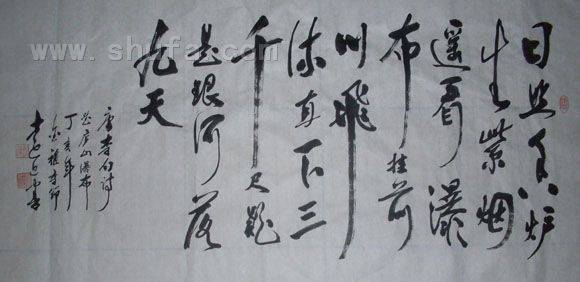 www.shufa.com
日照香炉
生紫烟
遥看瀑
布挂前
川飛
流直下三
千尺疑
是银河落
九天
唐李白诗
望庐山瀑布
丁亥年